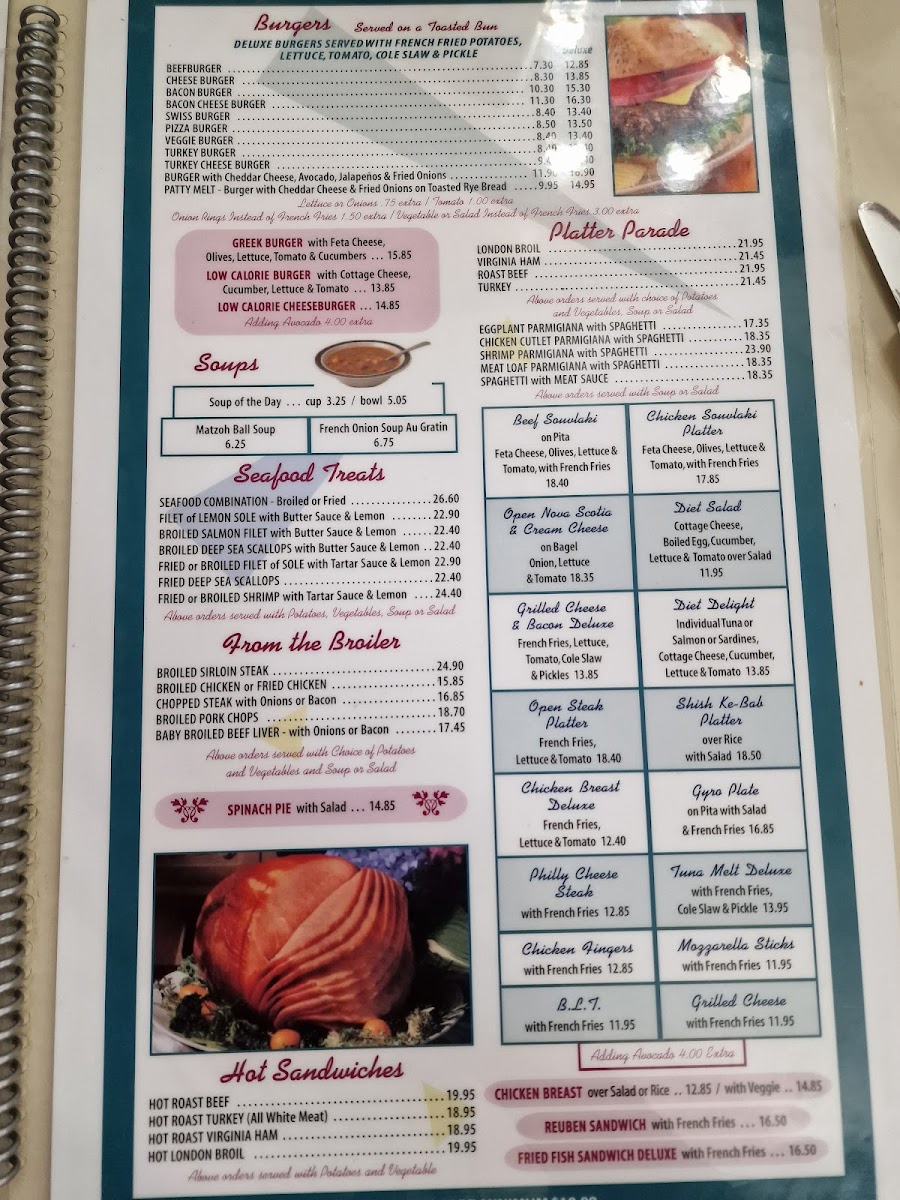 Burgers Served on a Toasted Bun
DELUXE BURGERS SERVED WITH FRENCH FRIED POTATOES,
LETTUCE, TOMATO, COLE SLAW & PICKLE
Deluxe
BEEFBURGER 7.30 12.85
CHEESE BURGER 8.30 13.85
BACON BURGER 10.30 15.30
BACON CHEESE BURGER 11.30 16.30
SWISS BURGER 8.40 13.40
PIZZA BURGER 8.50 13.50
VEGGIE BURGER 8.40 13.40
TURKEY BURGER
TURKEY CHEESE BURGER
BURGER with Cheddar Cheese, Avocado, Jalapeños & Fried Onions 11.90 16.90
PATTY MELT - Burger with Cheddar Cheese & Fried Onions on Toasted Rye Bread 9.95 14.95
Lettuce or Onions .75 extra / Tomato 1.00 extra
Onion Rings Instead of French Fries 1.50 extra / Vegetable or Salad Instead of French Fries 3.00 extra
GREEK BURGER with Feta Cheese,
Olives, Lettuce, Tomato & Cucumbers ... 15.85
LOW CALORIE BURGER with Cottage Cheese,
Cucumber, Lettuce & Tomato ... 13.85
LOW CALORIE CHEESEBURGER ... 14.85
Adding Avocado 4.00 extra
Soups
Soup of the Day ... cup 3.25 / bowl 5.05
Matzoh Ball Soup
6.25
French Onion Soup Au Gratin
6.75
Seafood Treats
SEAFOOD COMBINATION - Broiled or Fried 26.60
FILET of LEMON SOLE with Butter Sauce & Lemon 22.90
BROILED SALMON FILET with Butter Sauce & Lemon 22.40
BROILED DEEP SEA SCALLOPS with Butter Sauce & Lemon .. 22.40
FRIED or BROILED FILET of SOLE with Tartar Sauce & Lemon 22.90
FRIED DEEP SEA SCALLOPS 22.40
FRIED or BROILED SHRIMP with Tartar Sauce & Lemon .... 24.40
Above orders served with Potatoes, Vegetables, Soup or Salad
From the Broiler
BROILED SIRLOIN STEAK 24.90
BROILED CHICKEN or FRIED CHICKEN 15.85
CHOPPED STEAK with Onions or Bacon 16.85
BROILED PORK CHOPS 18.70
BABY BROILED BEEF LIVER - with Onions or Bacon 17.45
Above orders served with Choice of Potatoes
and Vegetables and Soup or Salad
SPINACH PIE with Salad ... 14.85
Hot Sandwiches
HOT ROAST BEEF 19.95
HOT ROAST TURKEY (All White Meat) 18.95
HOT ROAST VIRGINIA HAM 18.95
HOT LONDON BROIL 19.95
Above orders served with Potatoes and Vegetable
Platter Parade
LONDON BROIL 21.95
VIRGINIA HAM 21.45
ROAST BEEF 21.95
TURKEY 21.45
Above orders served with choice of Potatoes
and Vegetables, Soup or Salad
EGGPLANT PARMIGIANA with SPAGHETTI 17.35
CHICKEN CUTLET PARMIGIANA with SPAGHETTI 18.35
SHRIMP PARMIGIANA with SPAGHETTI 23.90
MEAT LOAF PARMIGIANA with SPAGHETTI 18.35
SPAGHETTI with MEAT SAUCE 18.35
Above orders served with Soup or Salad
Beef Souvlaki
on Pita
Feta Cheese, Olives, Lettuce &
Tomato, with French Fries
18.40
Chicken Souvlaki
Platter
Feta Cheese, Olives, Lettuce &
Tomato, with French Fries
17.85
Open Nova Scotia
& Cream Cheese
on Bagel
Onion, Lettuce
& Tomato 18.35
Diet Salad
Cottage Cheese,
Boiled Egg, Cucumber,
Lettuce & Tomato over Salad
11.95
Grilled Cheese
& Bacon Deluxe
French Fries, Lettuce,
Tomato, Cole Slaw
& Pickles 13.85
Diet Delight
Individual Tuna or
Salmon or Sardines,
Cottage Cheese, Cucumber,
Lettuce & Tomato 13.85
Open Steak
Platter
French Fries,
Lettuce & Tomato 18.40
Shish Ke-Bab
Platter
over Rice
with Salad 18.50
Chicken Breast
Deluxe
French Fries,
Lettuce & Tomato 12.40
Gyro Plate
on Pita with Salad
& French Fries 16.85
Philly Cheese
Steak
with French Fries 12.85
Tuna Melt Deluxe
with French Fries,
Cole Slaw & Pickle 13.95
Chicken Fingers
with French Fries 12.85
Mozzarella Sticks
with French Fries 11.95
B.L.T.
with French Fries 11.95
Grilled Cheese
with French Fries 11.95
Adding Avocado 4.00 Extra
CHICKEN BREAST over Salad or Rice .. 12.85 / with Veggie .. 14.85
REUBEN SANDWICH with French Fries ... 16.50
FRIED FISH SANDWICH DELUXE with French Fries ... 16.50